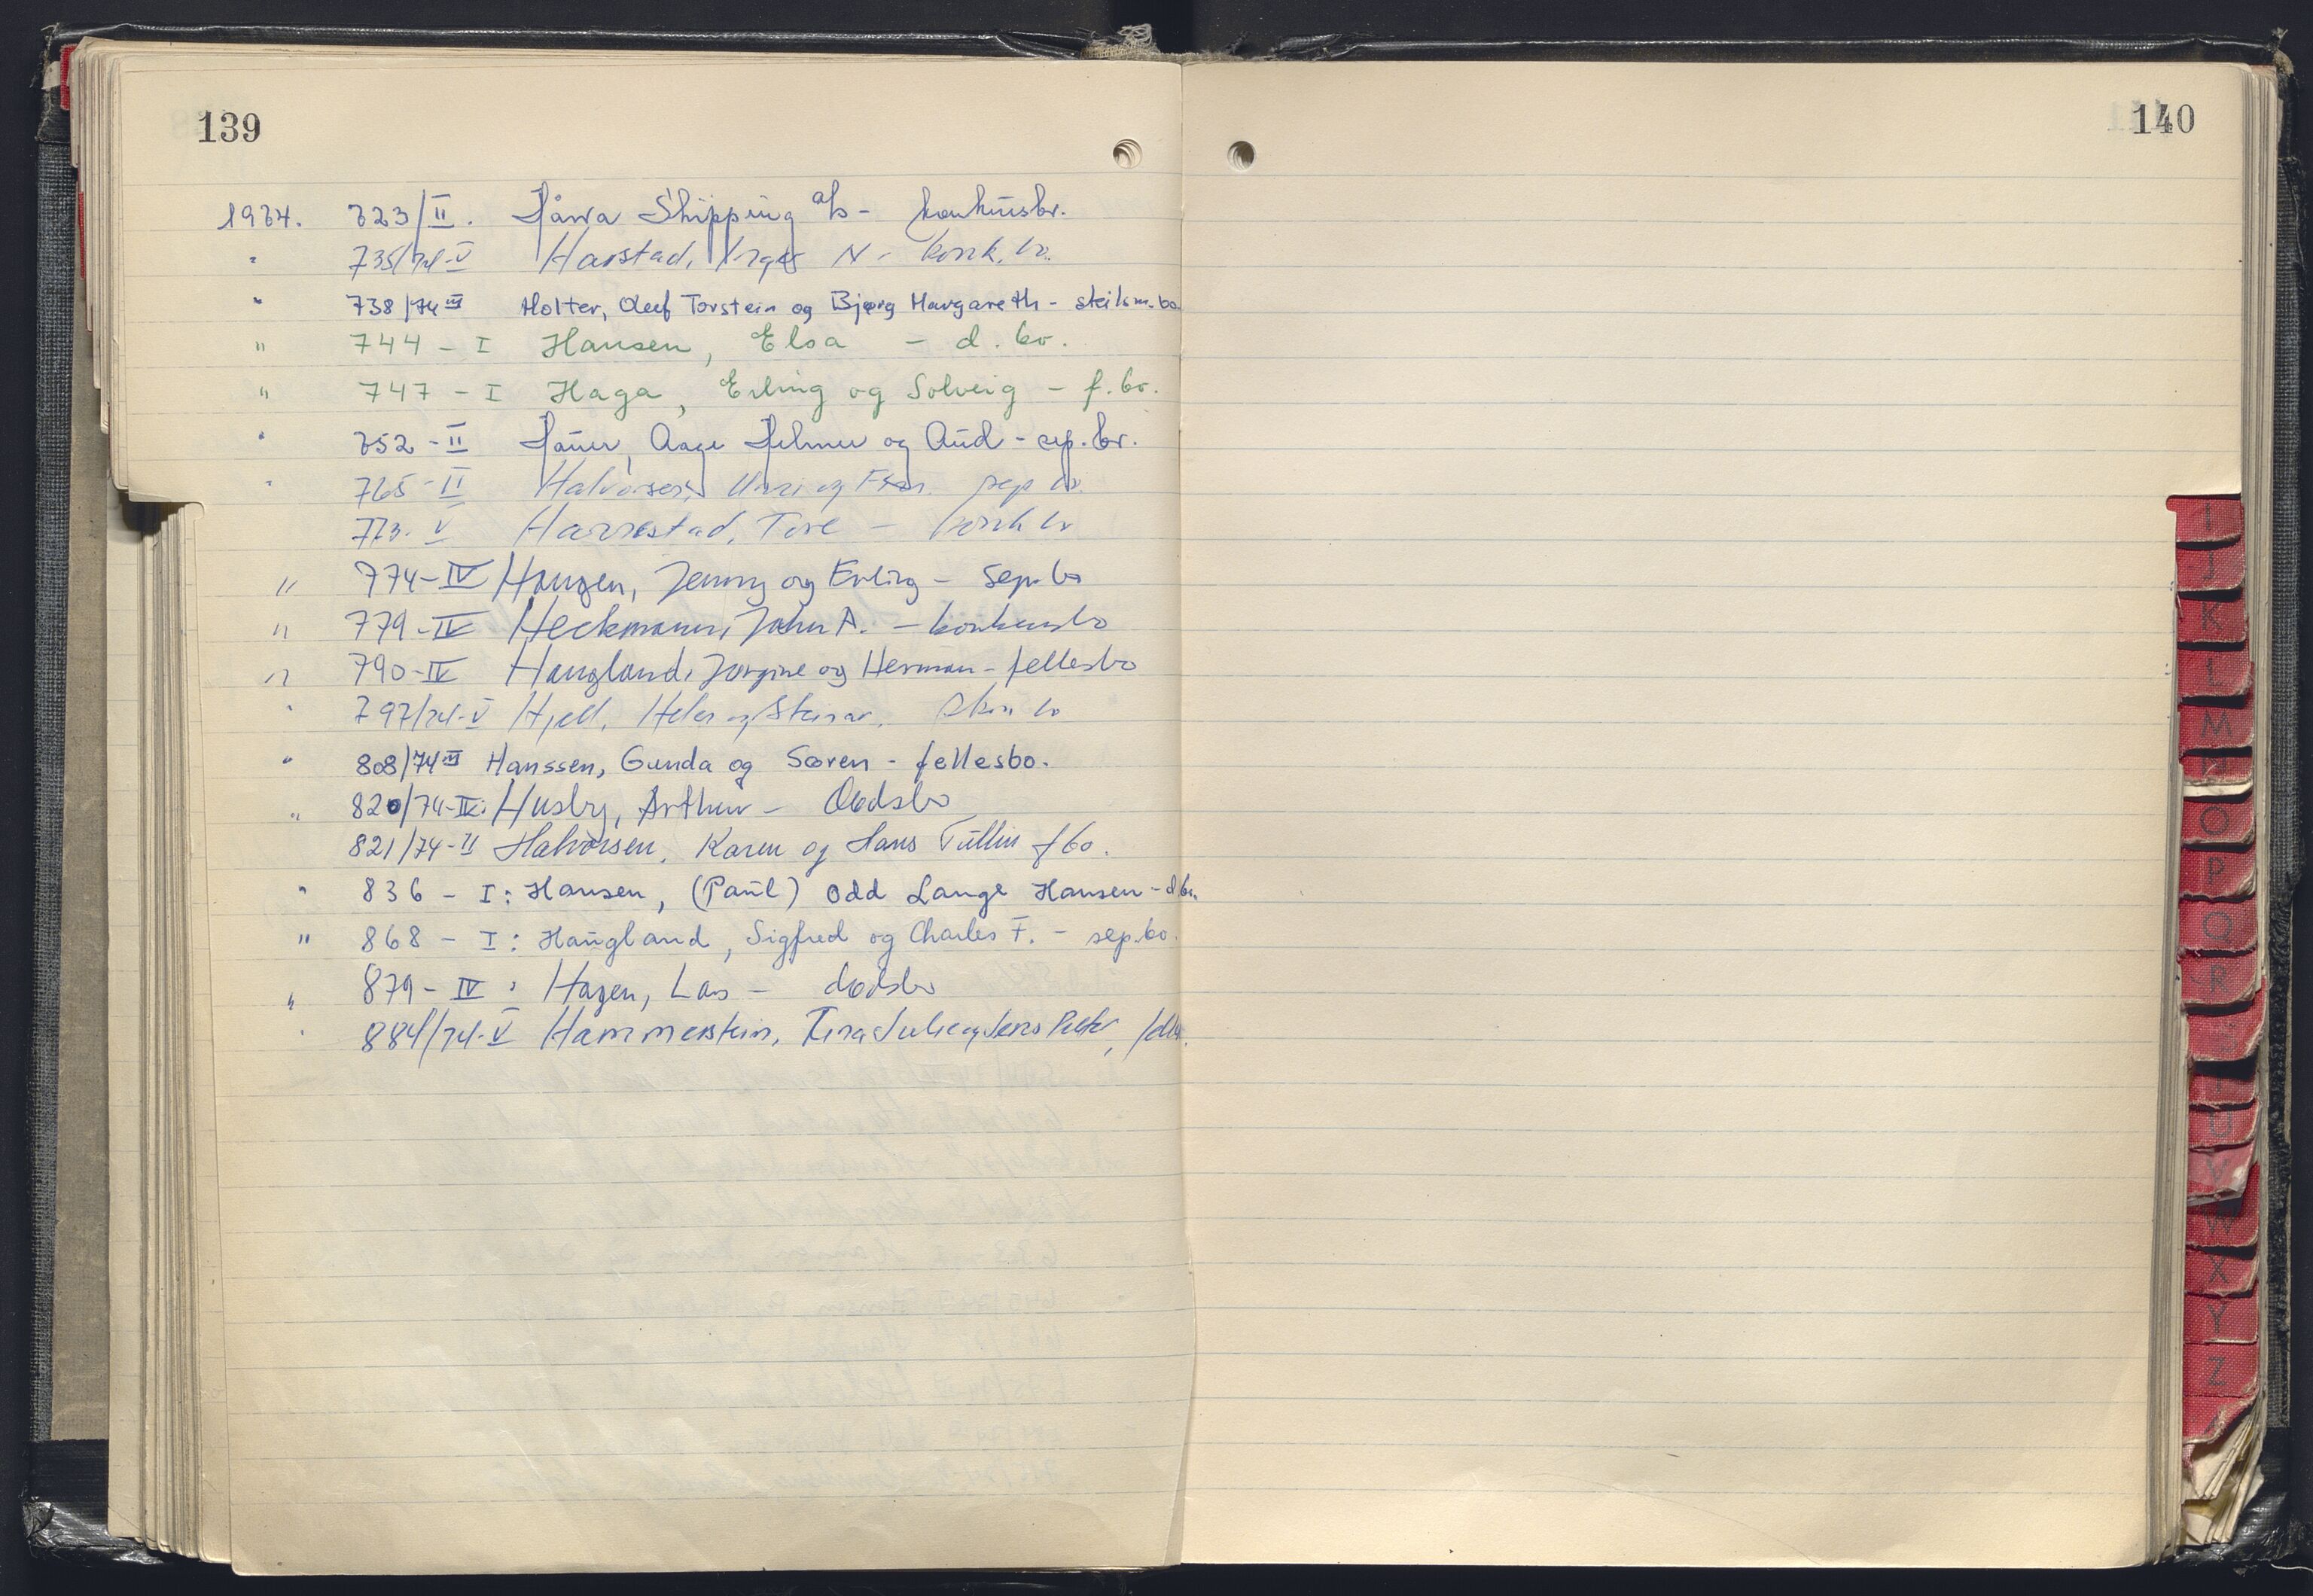 139
1974. 723/II. Håvva Shipping a/s - konkursbo.
" 735/74-V Harstad, Inger N - konk. bo.
" 738/74 III Holter, Oleif Torstein og Bjørg Margareth - skilsm.bo.
" 744 - I Hansen, Elsa - d. bo.
" 747 - I Haga, Erling og Solveig - f. bo.
" 752 - II Hauer, Aage Helmer og Aud - sep. bo.
" 765 - II Halvorsen, Unni og Finn. sep bo.
773. V Harrestad, Tore - konk bo
" 774-IV Haugen, Jenny og Erling - Sep. bo
" 779-IV Heckmann, John A. - konkursbo
" 790-IV Haugland, Jorgine og Herman - fellesbo
" 797/74-V Hjell, Helen og Steinar, skm bo
" 808/74 III Hanssen, Gunda og Søren - fellesbo.
" 820/74-IV: Husby, Arthur - Dødsbo
821/74-II Halvorsen, Karen og Hans Tullin f bo.
" 836 - I: Hansen, (Paul) Odd Lange Hansen - d bo.
" 868 - I: Haugland, Sigfred og Charles F. - sep.bo.
" 879 - IV: Hagen, Lars - dødsbo
" 884/74-V Hammerstein, Tina Julie og Jens Peter, felles
140
I
J
K
L
M
N
O
P
Q
R
S
T
U
V
W
X
Y
Z